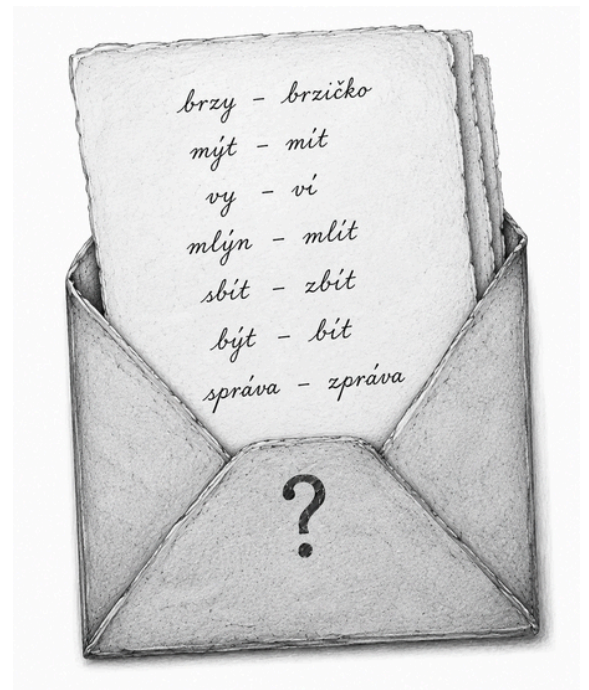 brzy – brzičko
mýt – mít
vy – ví
mlýn – mlít
sbít – zbít
být – bít
správa – zpráva
?